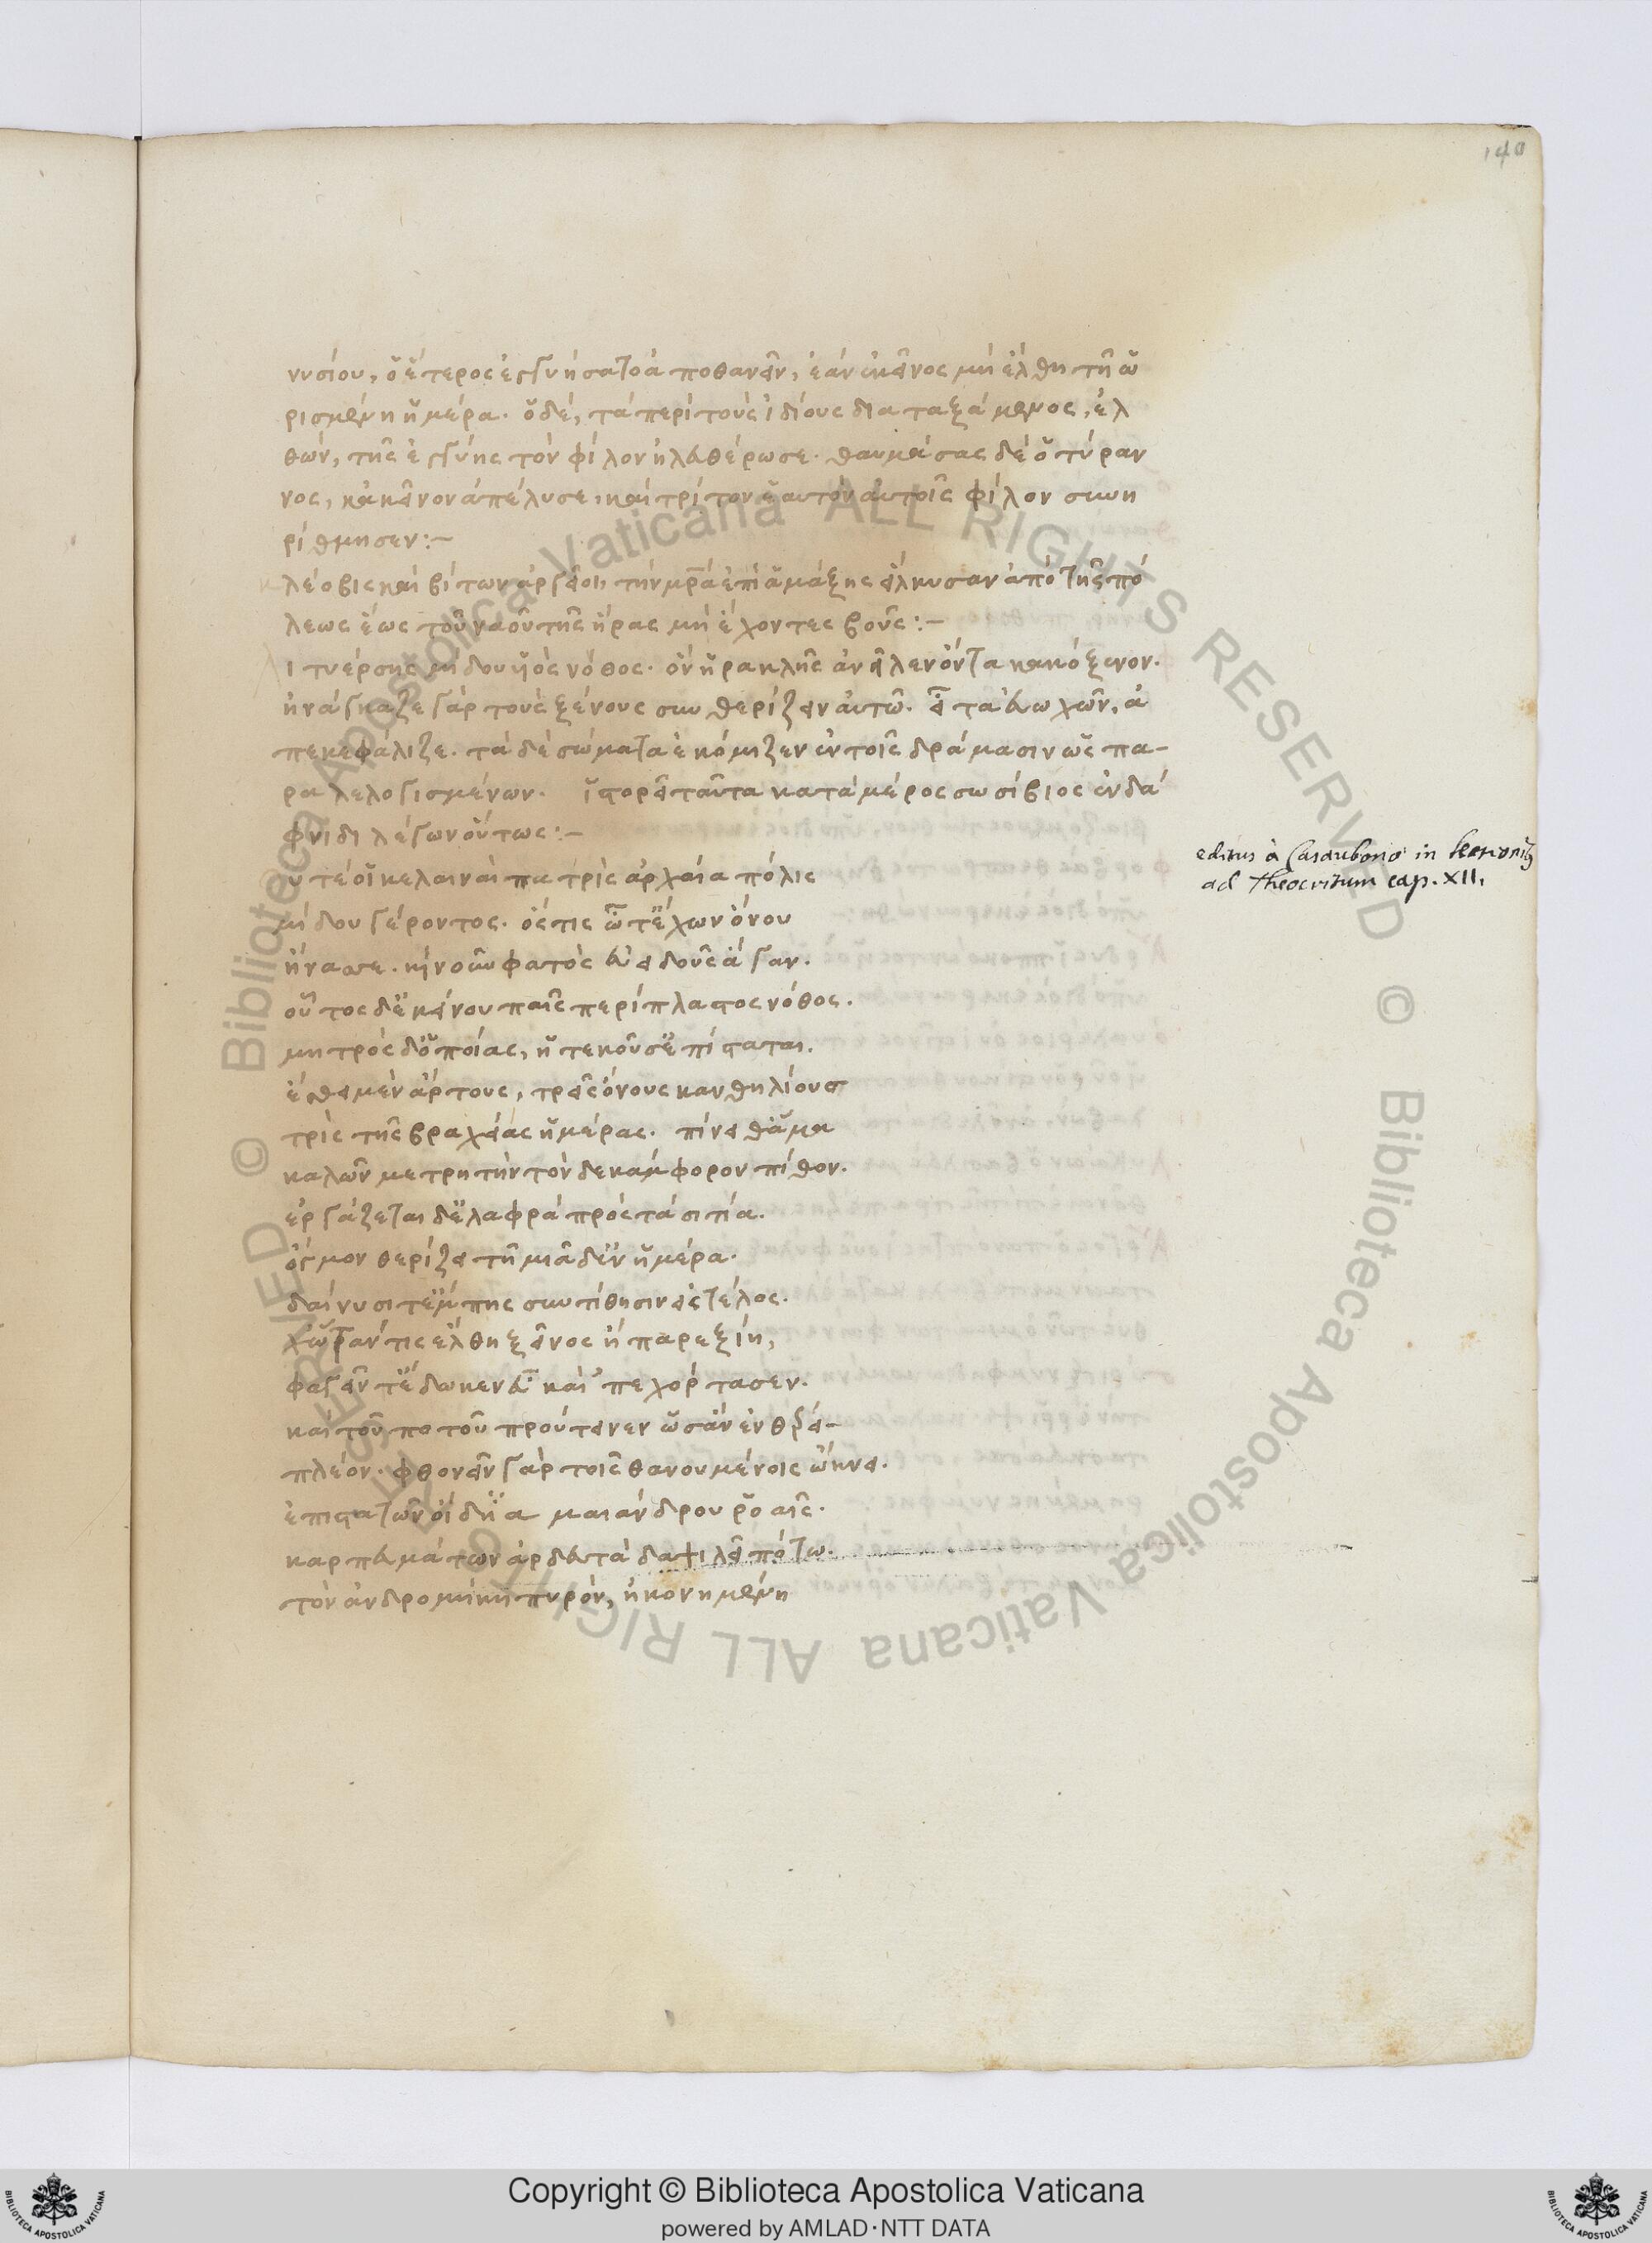 140
νυσίου, ὁ ἕτερος ἐγγυήσατο ἀποθανεῖν, ἐὰν ἐκεῖνος μὴ ἔλθη τῆ ὡ
ρισμένη ἡμέρα. ὁ δέ, τὰ περὶ τοὺς ἰδίους διαταξάμενος, ἐλ
θών, τῆς ἐγγύης τὸν φίλον ἠλευθέρωσε. θαυμάσας δὲ ὁ τύραν
νος, κἀκεῖνον ἀπέλυσε, καὶ τρίτον ἑαυτὸν αὐτοῖς φίλον συνη
ρίθμησεν:-
κλέοβις καὶ βίτων ἀργεῖοι, τὴν μρα ἐπὶ ἁμάξης εἵλκυσαν ἀπὸ τῆς πό
λεως ἕως τοῦ ναοῦ τῆς ἥρας μὴ ἔχοντες βοῦς:-
λιτυέρσης μίδου υἱὸς νόθος. ὃν ἡρακλῆς ἀνεῖλεν ὄντα κακόξενον.
ἠνάγκαζε γὰρ τοὺς ξένους συνθερίζειν αὐτῶ. εἶτα εὐωχῶν, ἀ
πεκεφάλιζε. τὰ δὲ σώματα ἐκόμιζεν ἐν τοῖς δράμασιν ὡς πα-
ραλελογισμένων. ἱστορεῖ ταῦτα κατὰ μέρος σωσίβιος ἐν δά
φνιδι λέγων οὕτως:-
editus à Casaubono in lectionib
ad Theocritum cap. XII.
τέοἱ κελαιναὶ πατρὶς ἀρχαία πόλις
μίδου γέροντος. ὅστις ὦτ᾽ ἔχων ὄνου
ἤνασσε. κἠν οὖν φατὸς εὐειδοῦς ἄγαν.
οὗτος δ᾽ ἐκείνου παῖς περίπλαστος νόθος.
μητρὸς δ᾽ ὁποίας, ἡ τεκοῦσ᾽ ἐπίσταται.
ἔσθει μὲν ἄρτους, τρεῖς ὄνους κανθηλίους
τρὶς τῆς βραχείας ἡμέρας. πίνει θ᾽ ἅμα
καλῶν μετρητὴν τὸν δεκάμφορον πίθον.
ἐργάζεται δ᾽ ἐλαφρὰ πρὸς τὰ σιτία.
ὄγμον θερίζει τῆ μιᾶ δ᾽ ἐν ἡμέρα.
δαίνυσί τ᾽ ἔμπης συντίθησιν εἰς τέλος.
χὥταν τις ἔλθη ξεῖνος ἢ παρεξίη,
φαγεῖν τ᾽ ἔδωκεν εὖ καὶ πεχόρτασεν.
καὶ τοῦ ποτοῦ προύτεινεν ὡσὰν ἐν θέρει
πλέον. φθονεῖν γὰρ τοῖς θανουμένοις ὤκνει.
ἐπιστατῶν οἱ δῆα μαιάνδρου ῥοαῖς.
καρπευμάτων ἀρδευτὰ δαψιλεῖ πότω.
τὸν ἀνδρομήκη πυρόν, ἠκονημένη
Copyright © Biblioteca Apostolica Vaticana
powered by AMLAD·NTT DATA
© Biblioteca Apostolica Vaticana ALL RIGHTS RESERVED © Biblioteca Apostolica Vaticana ALL RIGHTS RESERVED